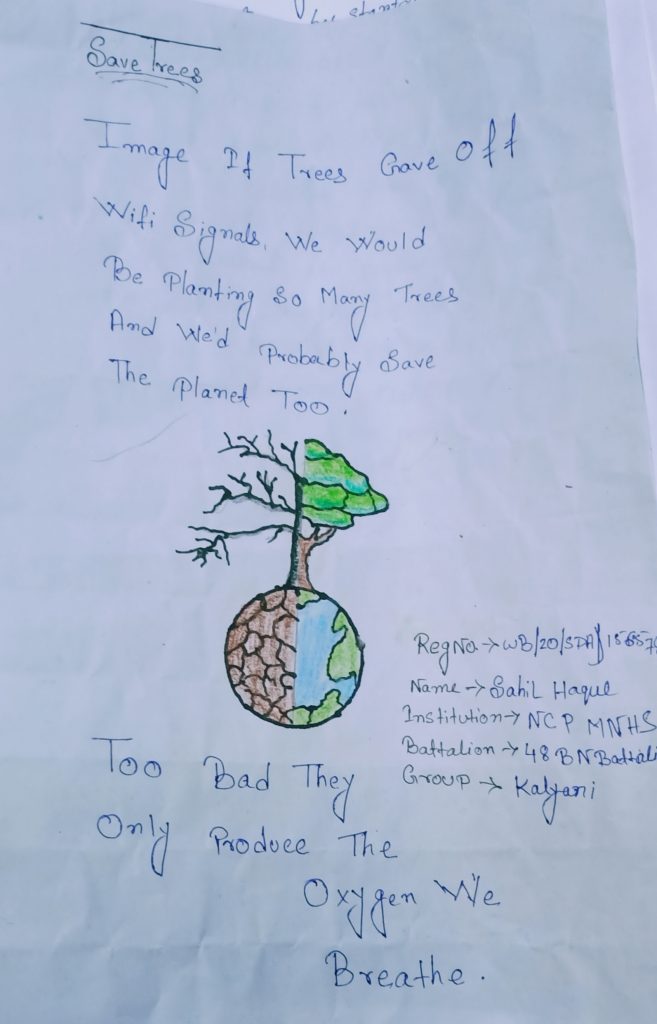 Save Trees
Image If Trees Gave Off
Wifi Signals, We Would
Be Planting So Many Trees
And We'd Probably Save
The Planet Too.
RegNo→WB/20/SDA/
Name→Sahil Haque
Institution→NCP MNHS
Battalion→48 BN Battali
Group→Kalyani
Too Bad They
Only Produce The
Oxygen We
Breathe.